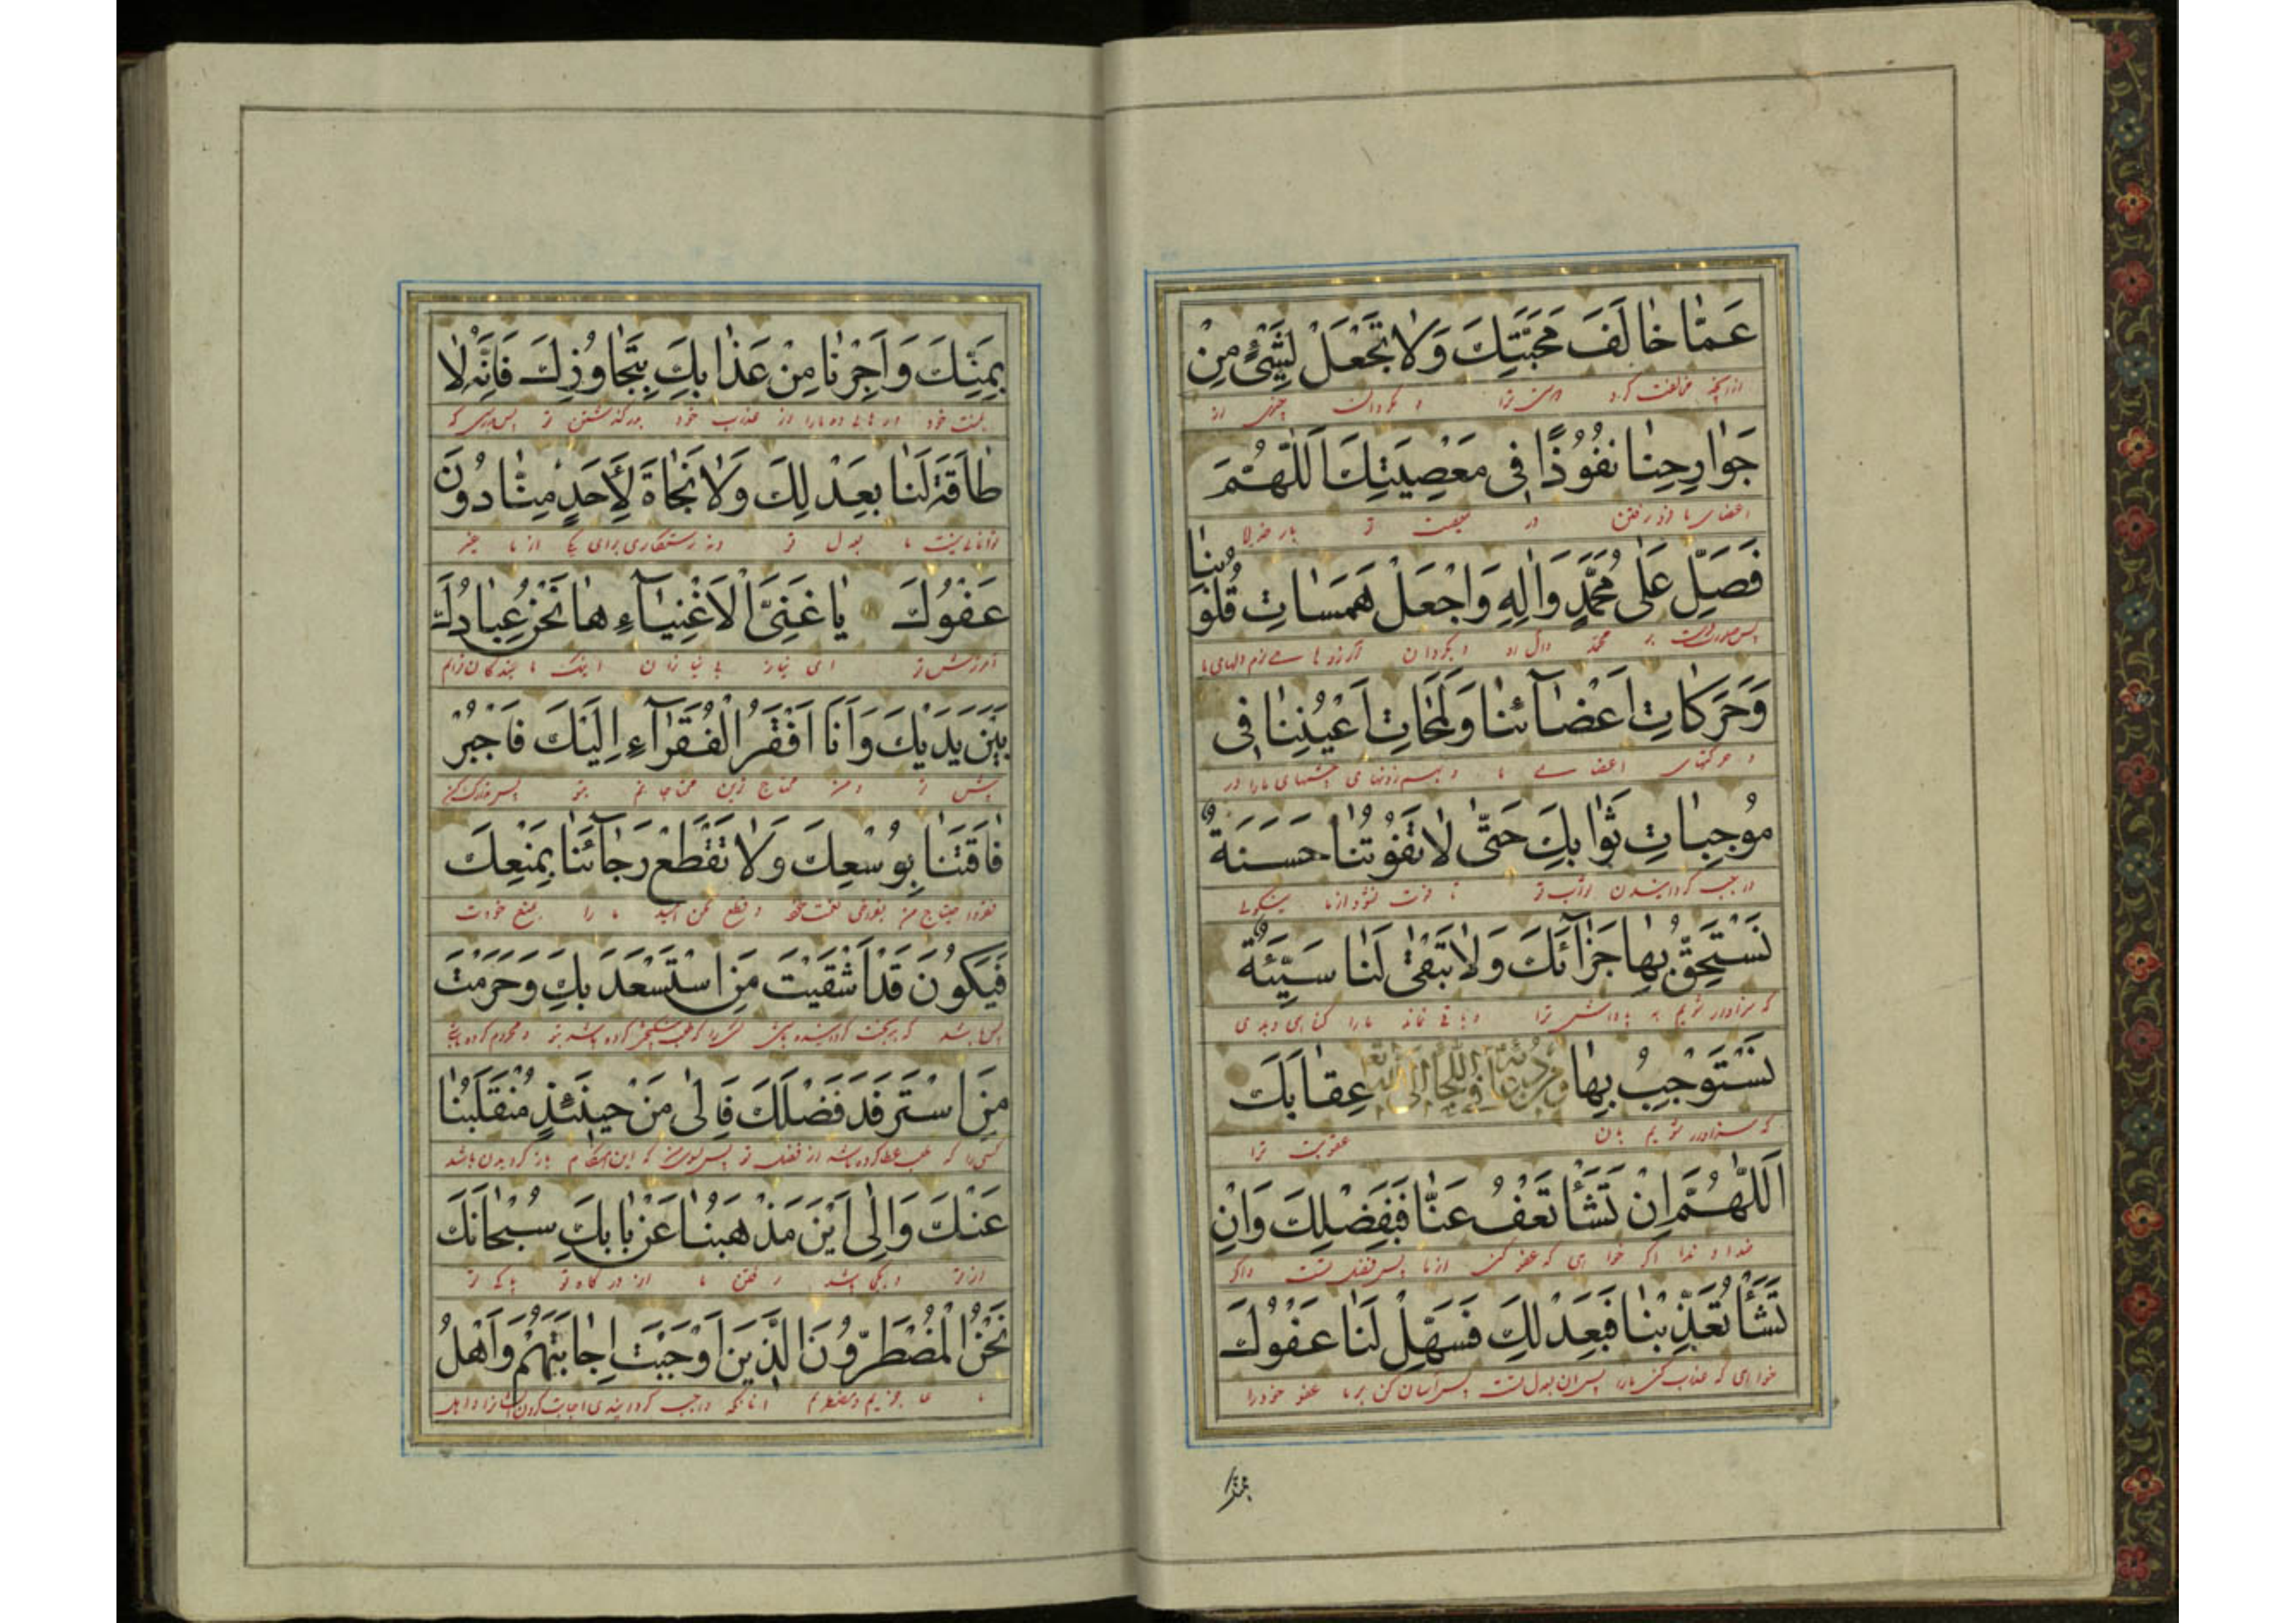 عَمَّا خَالَفَ مَحَبَّتَكَ وَلَا تَجْعَلْ لِشَيْءٍ مِنْ
ازانچه مخالفت کرد ترا و مگردان چیزی از
جَوَارِحِنَا نُفُوذًا فِي مَعْصِيَتِكَ اَللّٰهُمَّ
اعضای ما فرو رفتن در معصیت تو بار خدایا
فَصَلِّ عَلٰى مُحَمَّدٍ وَاٰلِهِ وَاجْعَلْ هَمَسَاتِ قُلُوبِنَا
پس بر محمد و آل او و بگردان دلهای ما
وَحَرَكَاتِ اَعْضَآئِنَا وَلَمَحَاتِ اَعْيُنِنَا فِي
و حرکتهای اعضای ما و چشمهای ما را در
مُوجِبَاتِ ثَوَابِكَ حَتّٰى لَا تَفُوتَنَا حَسَنَةٌ
ثواب تو تا فوت نشود از ما نیکوئی
نَسْتَحِقُّ بِهَا جَزَآئَكَ وَلَا تَبْقٰى لَنَا سَيِّئَةٌ
که سزاوار شویم به پاداش ترا و باقی نماند ما را بدی
نَسْتَوْجِبُ بِهَا وَمِنْ دُعَائِهِ فِي اللَّجَإِ اِلَى اللّٰهِ عِقَابَكَ
که سزاوار شویم بان عقوبت ترا
اَللّٰهُمَّ اِنْ تَشَأْ تَعْفُ عَنَّا فَبِفَضْلِكَ وَاِنْ
خداوندا اگر خواهی که عفو کنی از ما پس بفضل تست و اگر
تَشَأْ تُعَذِّبْنَا فَبِعَدْلِكَ فَسَهِّلْ لَنَا عَفْوَكَ
خواهی که عذاب کنی ما را پس ان بعدل تست پس آسان کن بر ما عفو خود را
بمنك
بِمَنِّكَ وَاَجِرْنَا مِنْ عَذَابِكَ بِتَجَاوُزِكَ فَاِنَّهُ لَا
بمنت خود و رهائی ده ما را از عذاب خود بدرگذشتن تو پس بدرستی که
طَاقَةَ لَنَا بِعَدْلِكَ وَلَا نَجَاةَ لِاَحَدٍ مِنَّا دُونَ
توانائی نیست ما بعدل تو و نه رستگاری برای یکی از ما غیر
عَفْوِكَ يَا غَنِيَّ الْاَغْنِيَآءِ هَا نَحْنُ عِبَادُكَ
آمرزش تو ای بی نیازان اینک ما بندگان توایم
بَيْنَ يَدَيْكَ وَاَنَا اَفْقَرُ الْفُقَرَآءِ اِلَيْكَ فَاجْبُرْ
پیش تو و من محتاج ترین محتاجانم بتو پس
فَاقَتَنَا بِوُسْعِكَ وَلَا تَقْطَعْ رَجَآئَنَا بِمَنْعِكَ
و قطع مکن امید ما را بمنع خودت
فَيَكُونَ قَدْ اَشْقَيْتَ مَنِ اسْتَسْعَدَ بِكَ وَحَرَمْتَ
پس باشد که بدبخت گردانیده باشی و محروم کرده باشی
مَنِ اسْتَرْفَدَ فَضْلَكَ فَاِلٰى مَنْ حِينَئِذٍ مُنْقَلَبُنَا
کسی را که طلب عطا کرده باشد از فضل تو باز گردیدن ما باشد
عَنْكَ وَاِلٰى اَيْنَ مَذْهَبُنَا عَنْ بَابِكَ سُبْحَانَكَ
از تو و بکجا باشد رفتن ما از درگاه تو پاکی تو
نَحْنُ الْمُضْطَرُّونَ الَّذِينَ اَوْجَبْتَ اِجَابَتَهُمْ وَاَهْلُ
ما عاجزیم و مضطریم آنانکه واجب گردانیدی اجابت کردن ایشانرا و اهل